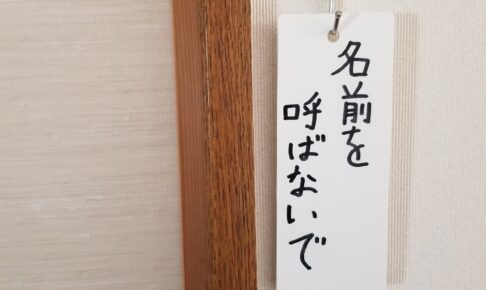 名前を
呼ばないで